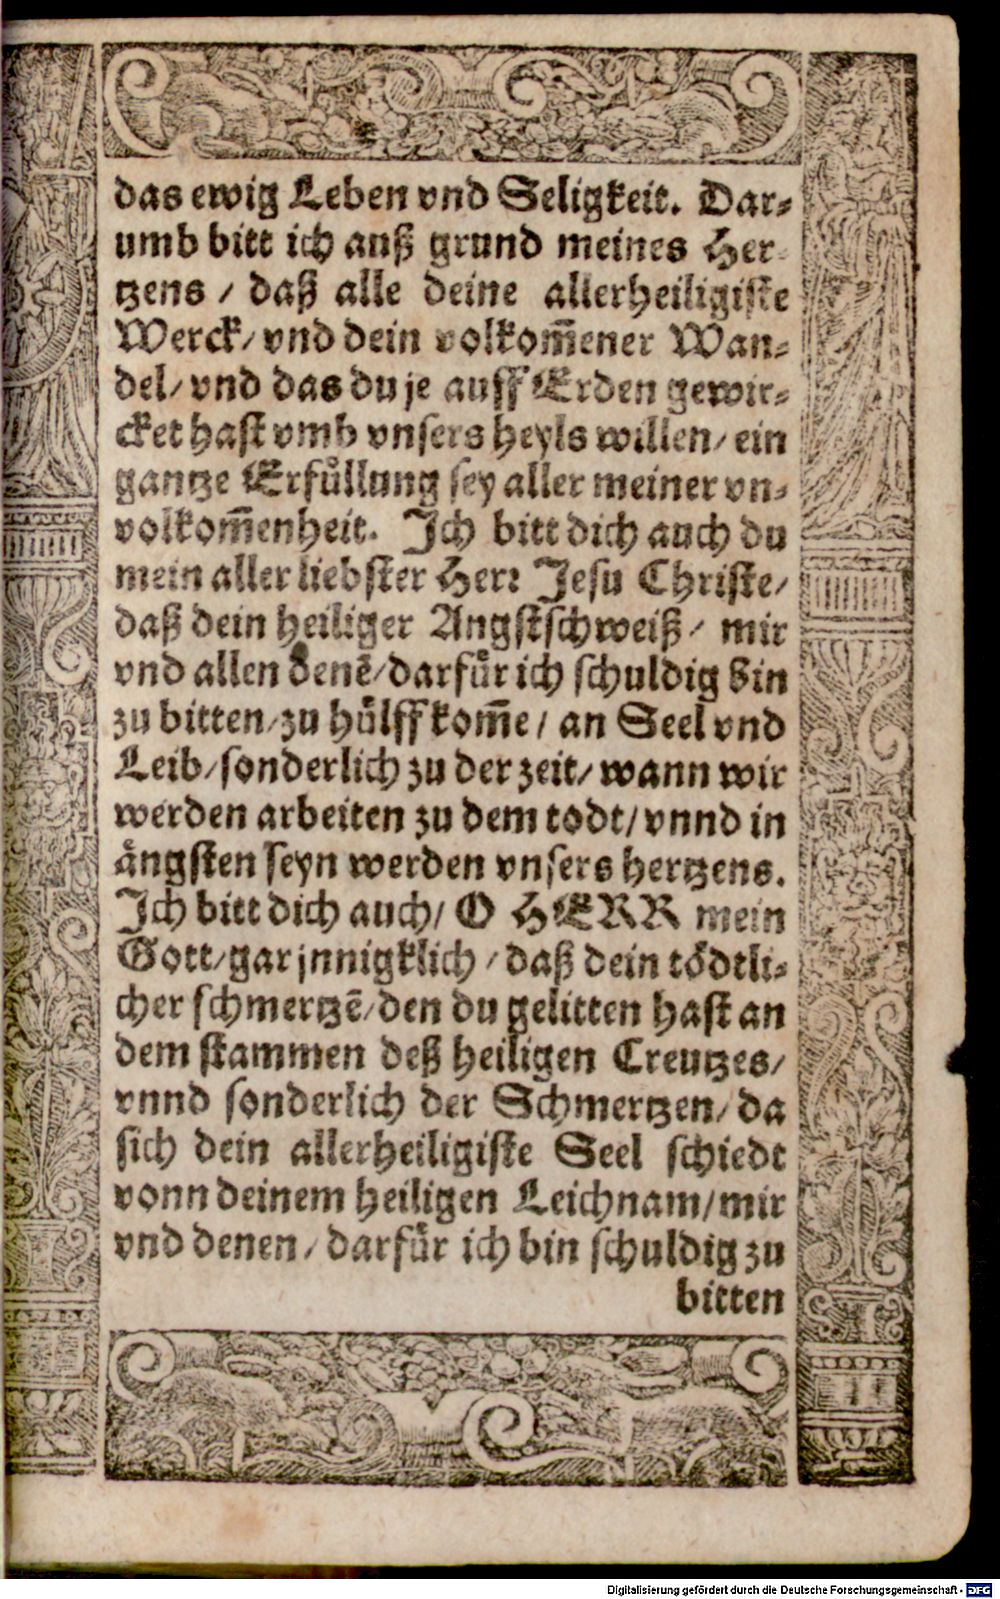 das ewig Leben vnd Seligkeit. Dar⸗
umb bitt ich auß grund meines Her⸗
tzens / daß alle deine allerheiligiste
Werck/ vnd dein volkom̄ener Wan⸗
del/ vnd das du je auff Erden gewir⸗
cket hast vmb vnsers heyls willen/ ein
gantze Erfuͤllung sey aller meiner vn⸗
volkom̄enheit. Ich bitt dich auch du
mein aller liebster Herr Jesu Christe/
daß dein heiliger Angstschweiß/ mir
vnd allen denē/ darfuͤr ich schuldig bin
zu bitten/ zu huͤlff kom̄e/ an Seel vnd
Leib/ sonderlich zu der zeit/ wann wir
werden arbeiten zu dem todt/ vnnd in
aͤngsten seyn werden vnsers hertzens.
Ich bitt dich auch/ O HERR mein
Gott/ gar jnnigklich / daß dein toͤdtli⸗
cher schmertzē/ den du gelitten hast an
dem stammen deß heiligen Creutzes/
vnnd sonderlich der Schmertzen/ da
sich dein allerheiligiste Seel schiedt
vonn deinem heiligen Leichnam/ mir
vnd denen/ darfuͤr ich bin schuldig zu
bitten
Digitalisierung gefördert durch die Deutsche Forschungsgemeinschaft - DFG